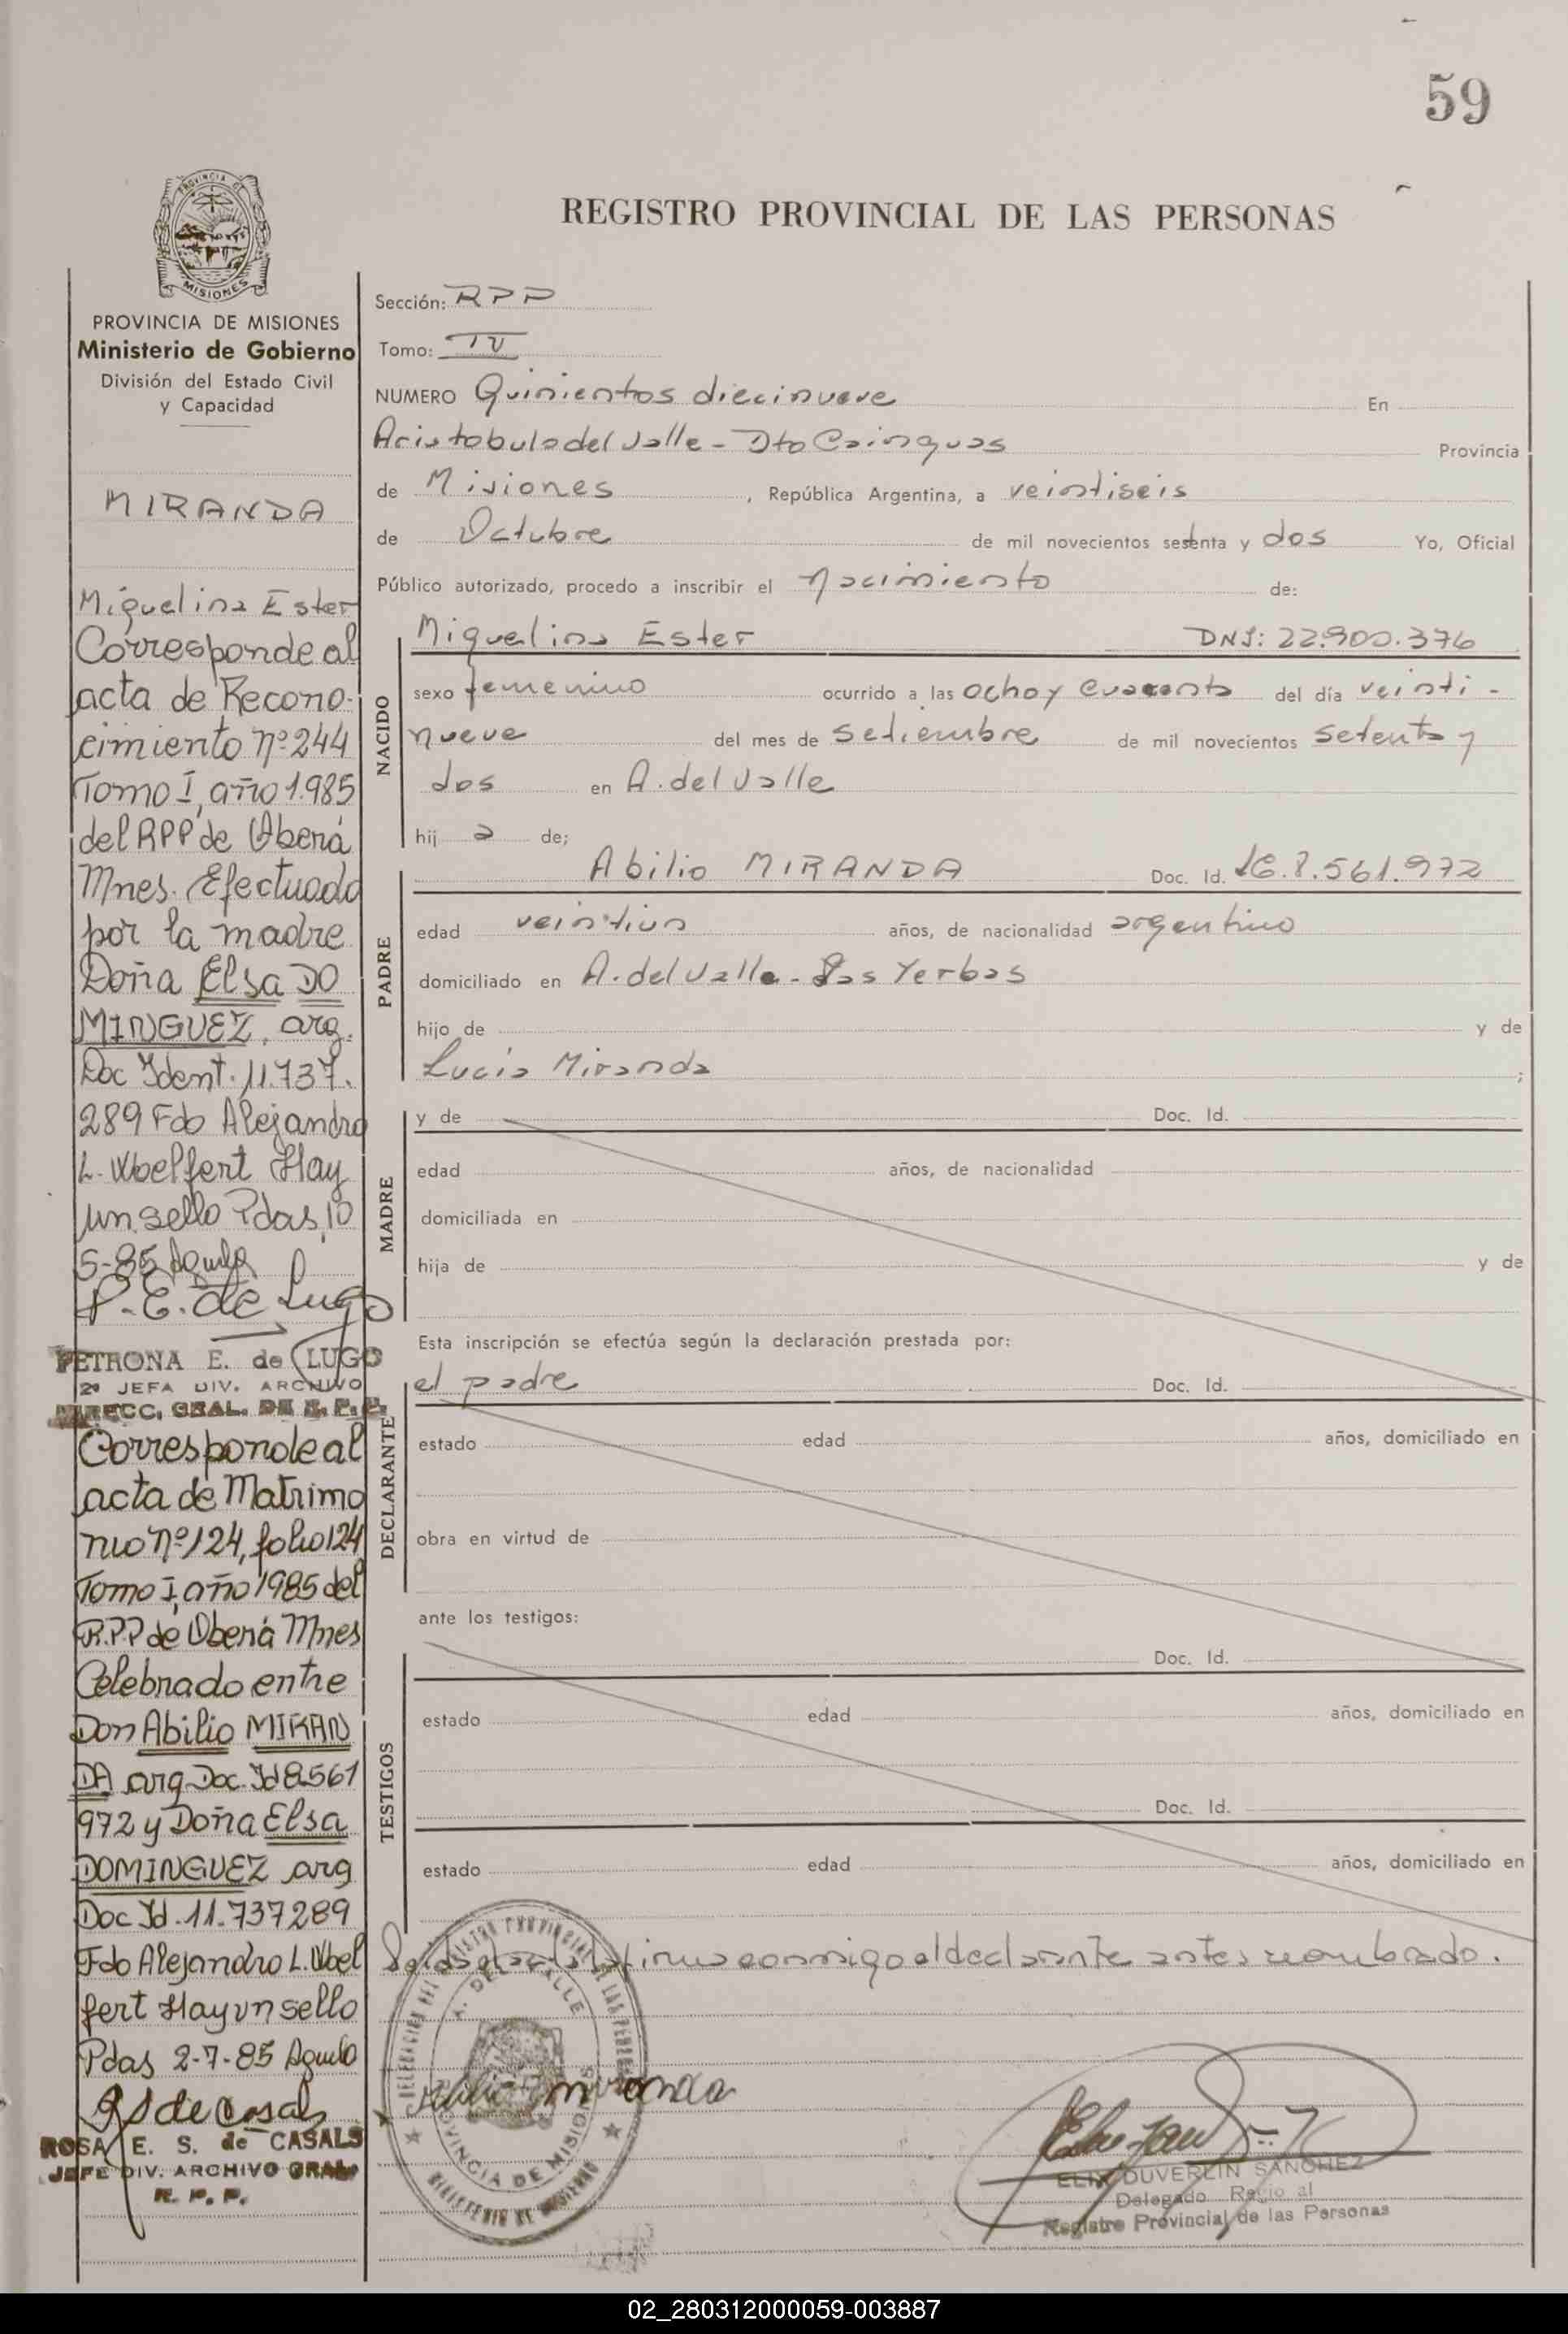 59
REGISTRO PROVINCIAL DE LAS PERSONAS
PROVINCIA DE
MISIONES
PROVINCIA DE MISIONES
Ministerio de Gobierno
División del Estado Civil
y Capacidad
MIRANDA
Miguelina Ester
Corresponde al
acta de Recono-
cimiento nº 244
Tomo I, año 1.985
del RPP de Oberá
Mnes. Efectuado
por la madre
Doña Elsa DO
MINGUEZ, arg.
Doc Ident. 11.737.
289 Fdo Alejandro
L. Woelfert Hay
un sello Pdas, 10
5-85
P. E. de Lugo
PETRONA E. de LUGO
2º JEFA DIV. ARCHIVO
DIRECC. GRAL. DE R. P. P.
Corresponde al
acta de Matrimo
nio nº 124, folio 124
Tomo I, año 1985 del
R.P.P de Oberá Mnes
Celebrado entre
Don Abilio MIRAN
DA arg Doc. Id 8.561
972 y Doña Elsa
DOMINGUEZ arg
Doc Id. 11.737289
Fdo Alejandro L. Woel
fert Hay un sello
Pdas 2-7-85
de Casals
ROSA E. S. de CASALS
JEFE DIV. ARCHIVO GRAL.
R. P. P.
Sección: RPP
Tomo: IV
NUMERO Quinientos diecinueve En
Aristobulo del Valle - Dto Cainguas Provincia
de Misiones, República Argentina, a veintiseis
de Octubre de mil novecientos setenta y dos Yo, Oficial
Público autorizado, procedo a inscribir el nacimiento de:
NACIDO
Miguelina Ester DNI: 22.900.376
sexo femenino ocurrido a las ocho y cuarenta del día veinti-
nueve del mes de Setiembre de mil novecientos setenta y
dos en A. del Valle
hij a de;
PADRE
Abilio MIRANDA Doc. Id. 8.561.972
edad veintiun años, de nacionalidad argentino
domiciliado en A. del Valle - Las Yerbas
hijo de y de
Lucia Miranda ;
MADRE
y de Doc. Id.
edad años, de nacionalidad
domiciliada en
hija de y de
Esta inscripción se efectúa según la declaración prestada por:
DECLARANTE
el padre Doc. Id.
estado edad años, domiciliado en
obra en virtud de
ante los testigos:
TESTIGOS
Doc. Id.
estado edad años, domiciliado en
Doc. Id.
estado edad años, domiciliado en
conmigo el declarante antes nombrado.
A. DEL VALLE
PROVINCIA DE MISIONES
miranda
DUVERLIN SANCHEZ
Delegado
Registro Provincial de las Personas
02_280312000059-003887